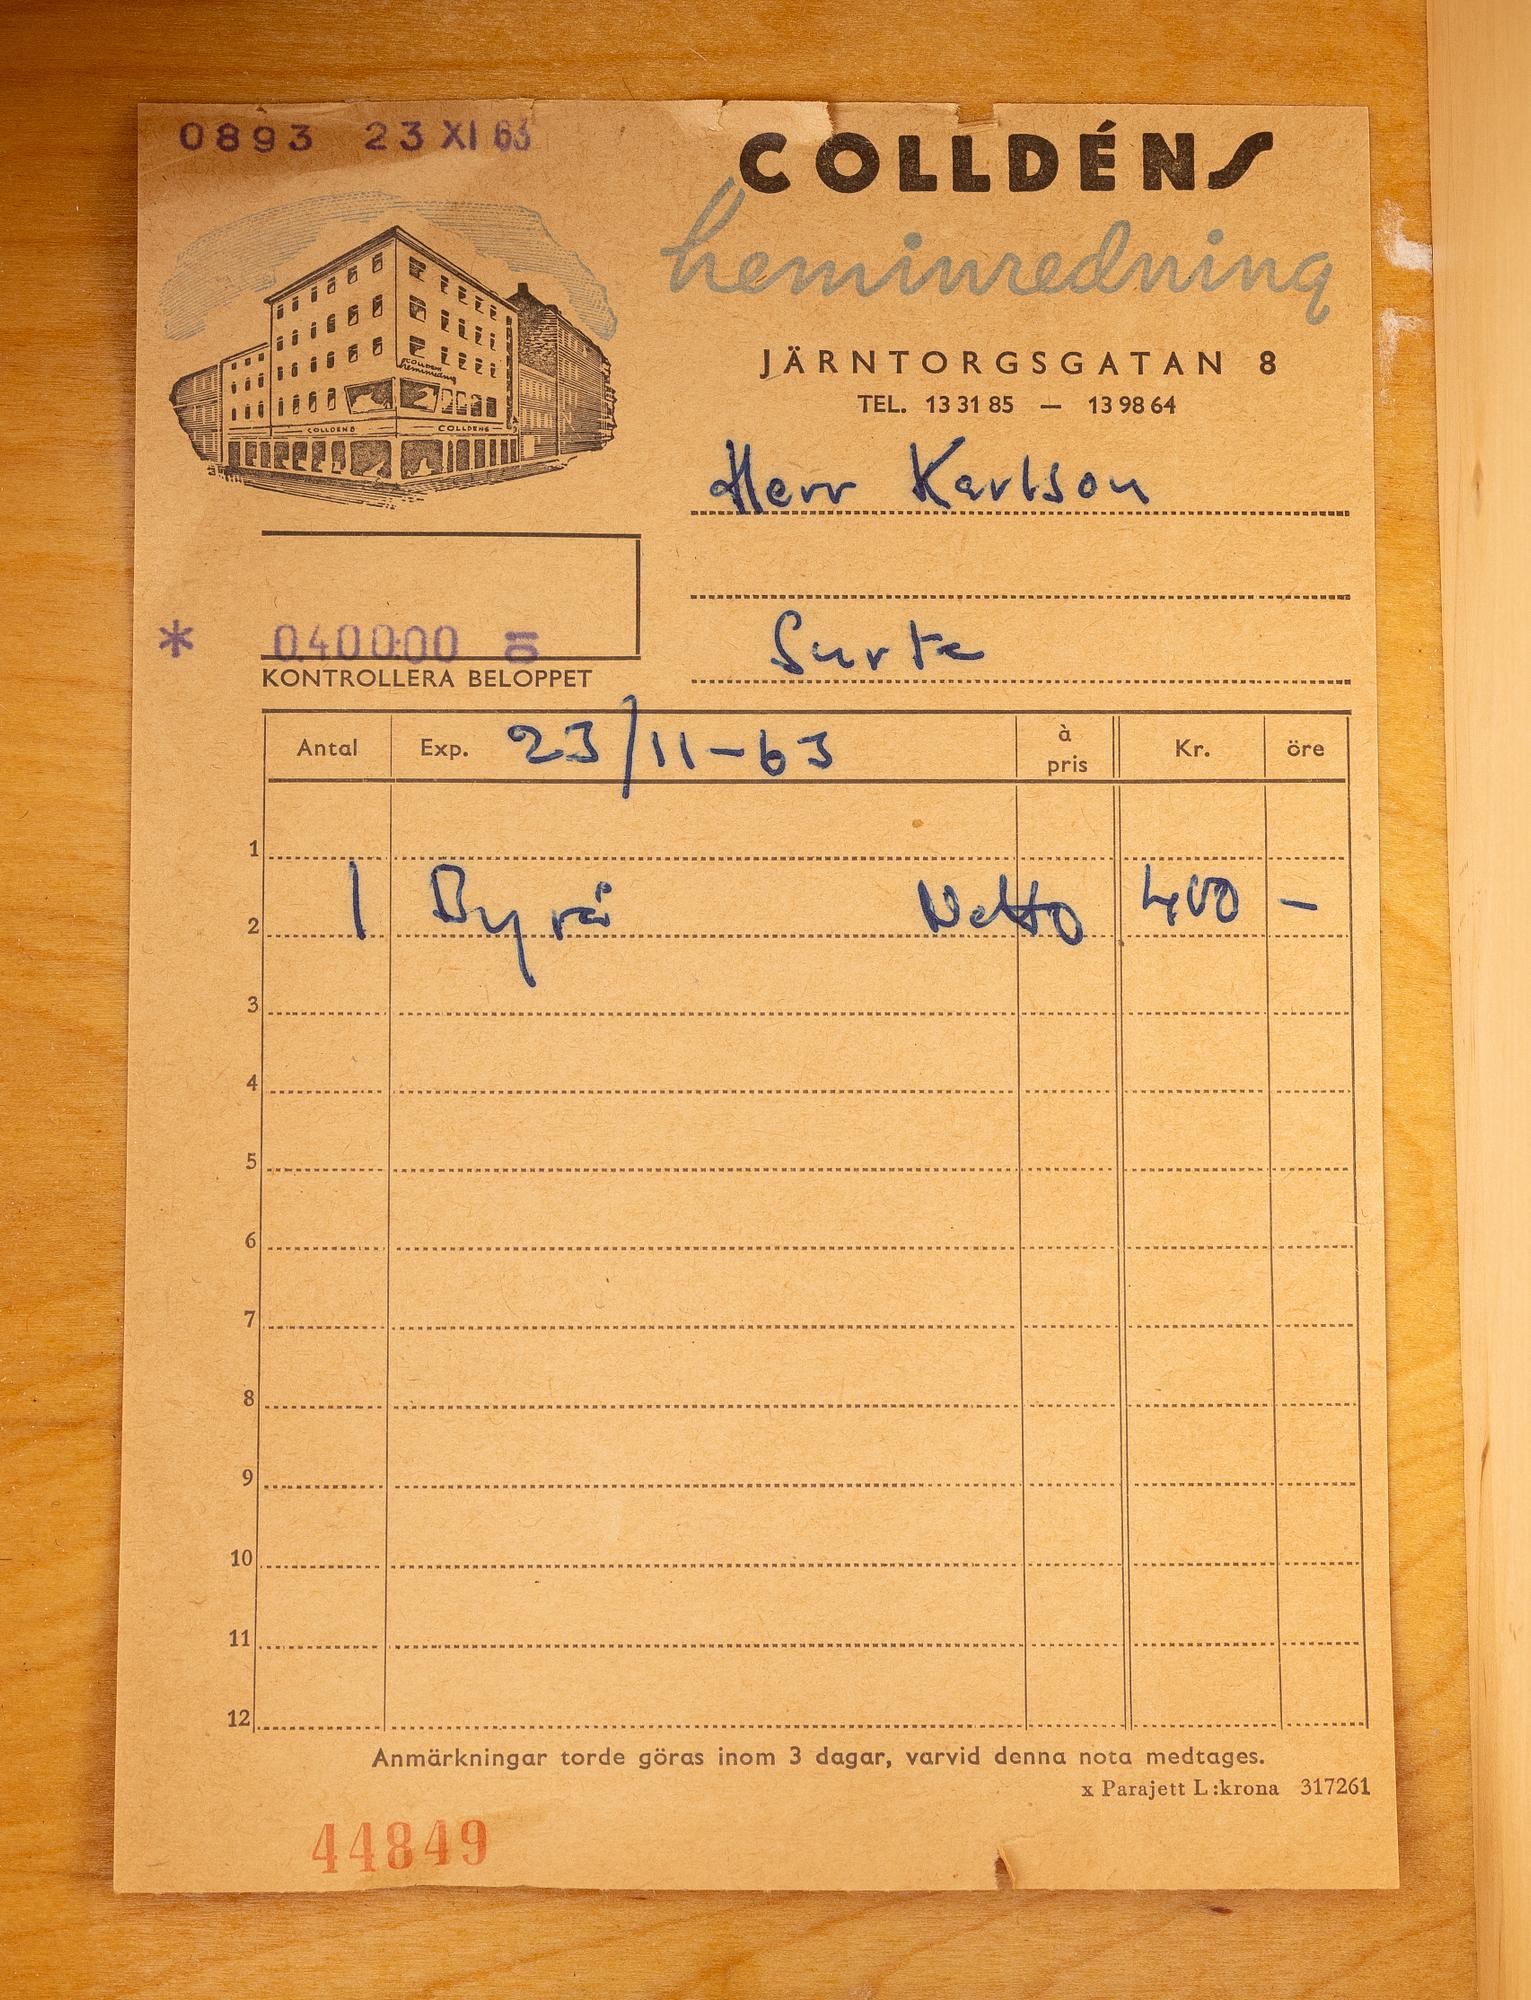 0893 23 XI 63
COLLDÉNS
heminredning
JÄRNTORGSGATAN 8
TEL. 13 31 85 — 13 98 64
COLLDÉNS
heminredning
COLLDÉNS COLLDÉNS
Herr Karlson
* 0.400:00 10
Surte
KONTROLLERA BELOPPET
Antal Exp. 23/11-63 à pris Kr. öre
1
2 1 Byrå Netto 400 –
3
4
5
6
7
8
9
10
11
12
Anmärkningar torde göras inom 3 dagar, varvid denna nota medtages.
x Parajett L:krona 317261
44849